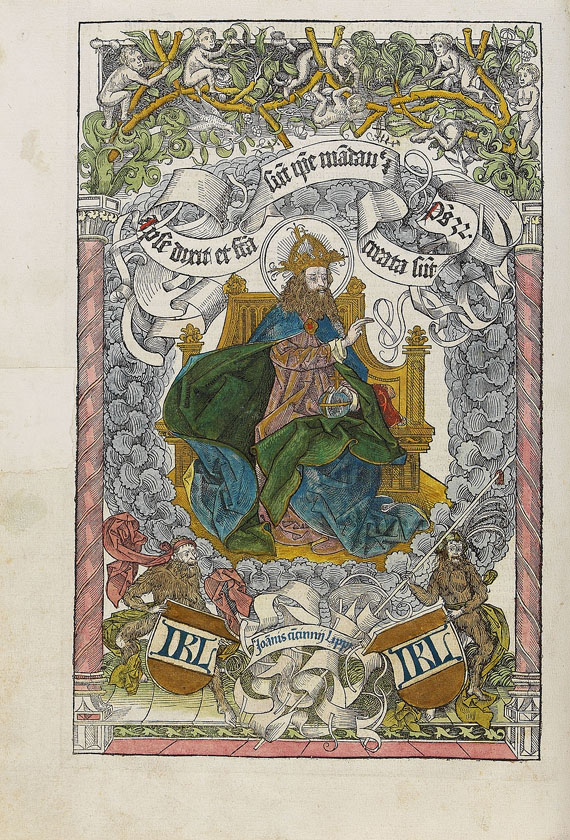 Ipse dixit et fc̄a
sūt ip̄e mādauᵗ ⁊
creata sūt
p̄s 32.
IKL
Joānis cīcinnij Lippi
IKL